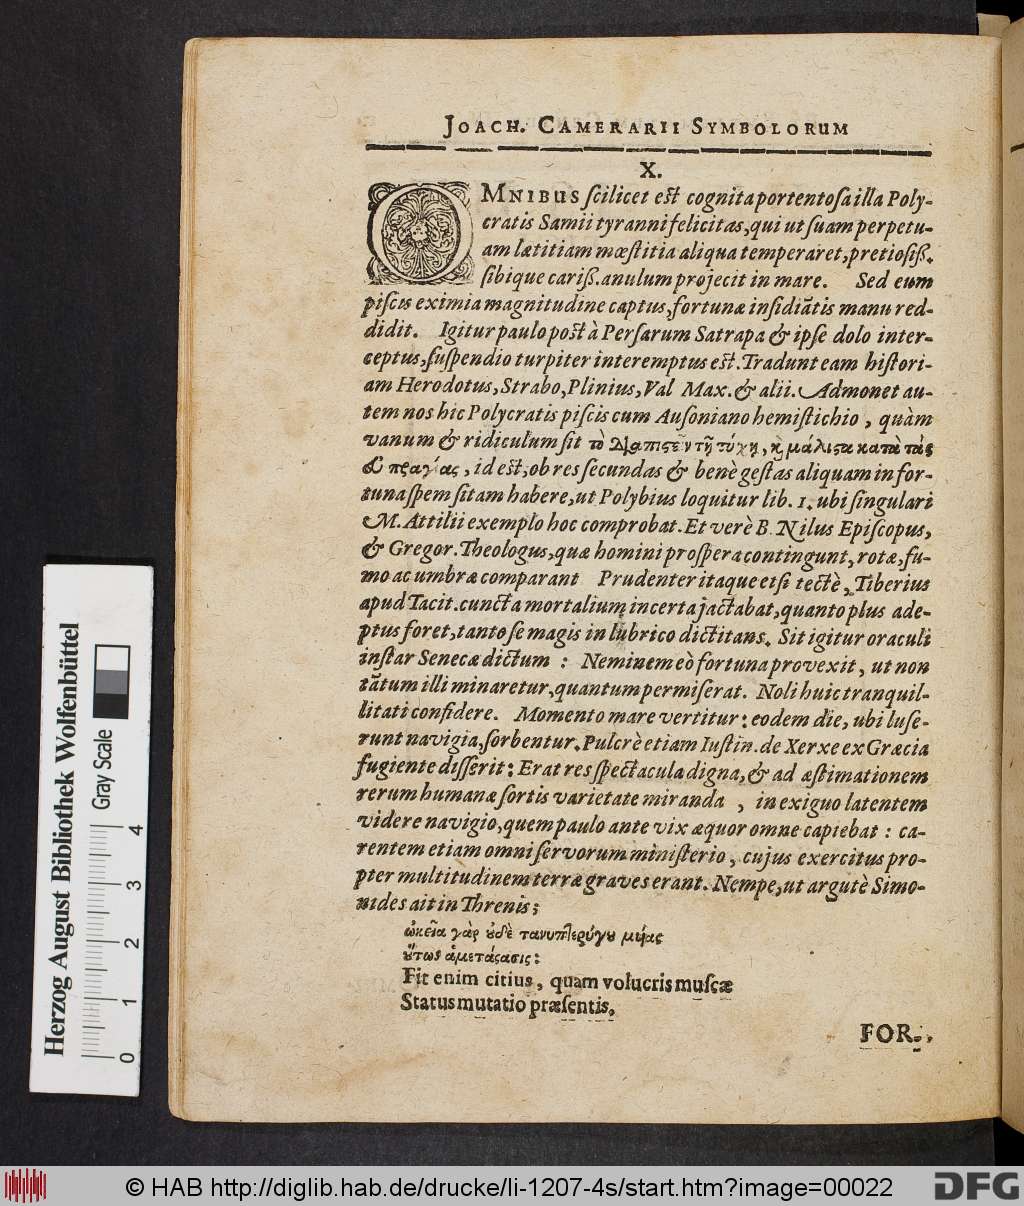 JOACH. CAMERARII SYMBOLORUM
X.
OMNIBUS ſcilicet eſt cognita portentoſa illa Poly-
cratis Samii tyranni felicitas, qui ut ſuam perpetu-
am lætitiam mœſtitia aliqua temperaret, pretioſiſſ.
ſibique cariſſ. anulum projecit in mare. Sed eum
piſcis eximia magnitudine captus, fortunæ inſidiãtis manu red-
didit. Igitur paulo poſt à Perſarum Satrapa & ipſe dolo inter-
ceptus, ſuſpendio turpiter interemptus eſt. Tradunt eam hiſtori-
am Herodotus, Strabo, Plinius, Val Max. & alii. Admonet au-
tem nos hic Polycratis piſcis cum Auſoniano hemiſtichio, quàm
vanum & ridiculum ſit τὸ διαπιϛεῖν τῇ τύχῃ, ϗ μάλιϛα κατὰ τὰς
ευπραγίας, id eſt, ob res ſecundas & benè geſtas aliquam in for-
tuna ſpem ſitam habere, ut Polybius loquitur lib. 1. ubi ſingulari
M. Attilii exemplo hoc comprobat. Et verè B. Nilus Epiſcopus,
& Gregor. Theologus, quæ homini proſpera contingunt, rotæ, fu-
mo ac umbræ comparant Prudenter itaque etſi tectè, Tiberius
apud Tacit. cuncta mortalium incerta jactabat, quanto plus ade-
ptus foret, tanto ſe magis in lubrico dictitans. Sit igitur oraculi
inſtar Senecæ dictum : Neminem eò fortuna provexit, ut non
tãtum illi minaretur, quantum permiſerat. Noli huic tranquil-
litati confidere. Momento mare vertitur: eodem die, ubi luſe-
runt navigia, ſorbentur. Pulcrè etiam Iuſtin. de Xerxe ex Græcia
fugiente diſſerit: Erat res ſpectacula digna, & ad æſtimationem
rerum humanæ ſortis varietate miranda, in exiguo latentem
videre navigio, quem paulo ante vix æquor omne capiebat : ca-
rentem etiam omni ſervorum miniſterio, cujus exercitus pro-
pter multitudinem terræ graves erant. Nempe, ut argutè Simo-
nides ait in Threnis;
ὠκεῖα γὰρ ȣδὲ τανυπτερύγȣ μυίας
ȣ̋τως ἁ μετάϛασις:
Fit enim citius, quam volucris muſcæ
Status mutatio præſentis.
FOR-
Herzog August Bibliothek Wolfenbüttel
Gray Scale
0 1 2 3 4
© HAB http://diglib.hab.de/drucke/li-1207-4s/start.htm?image=00022
DFG